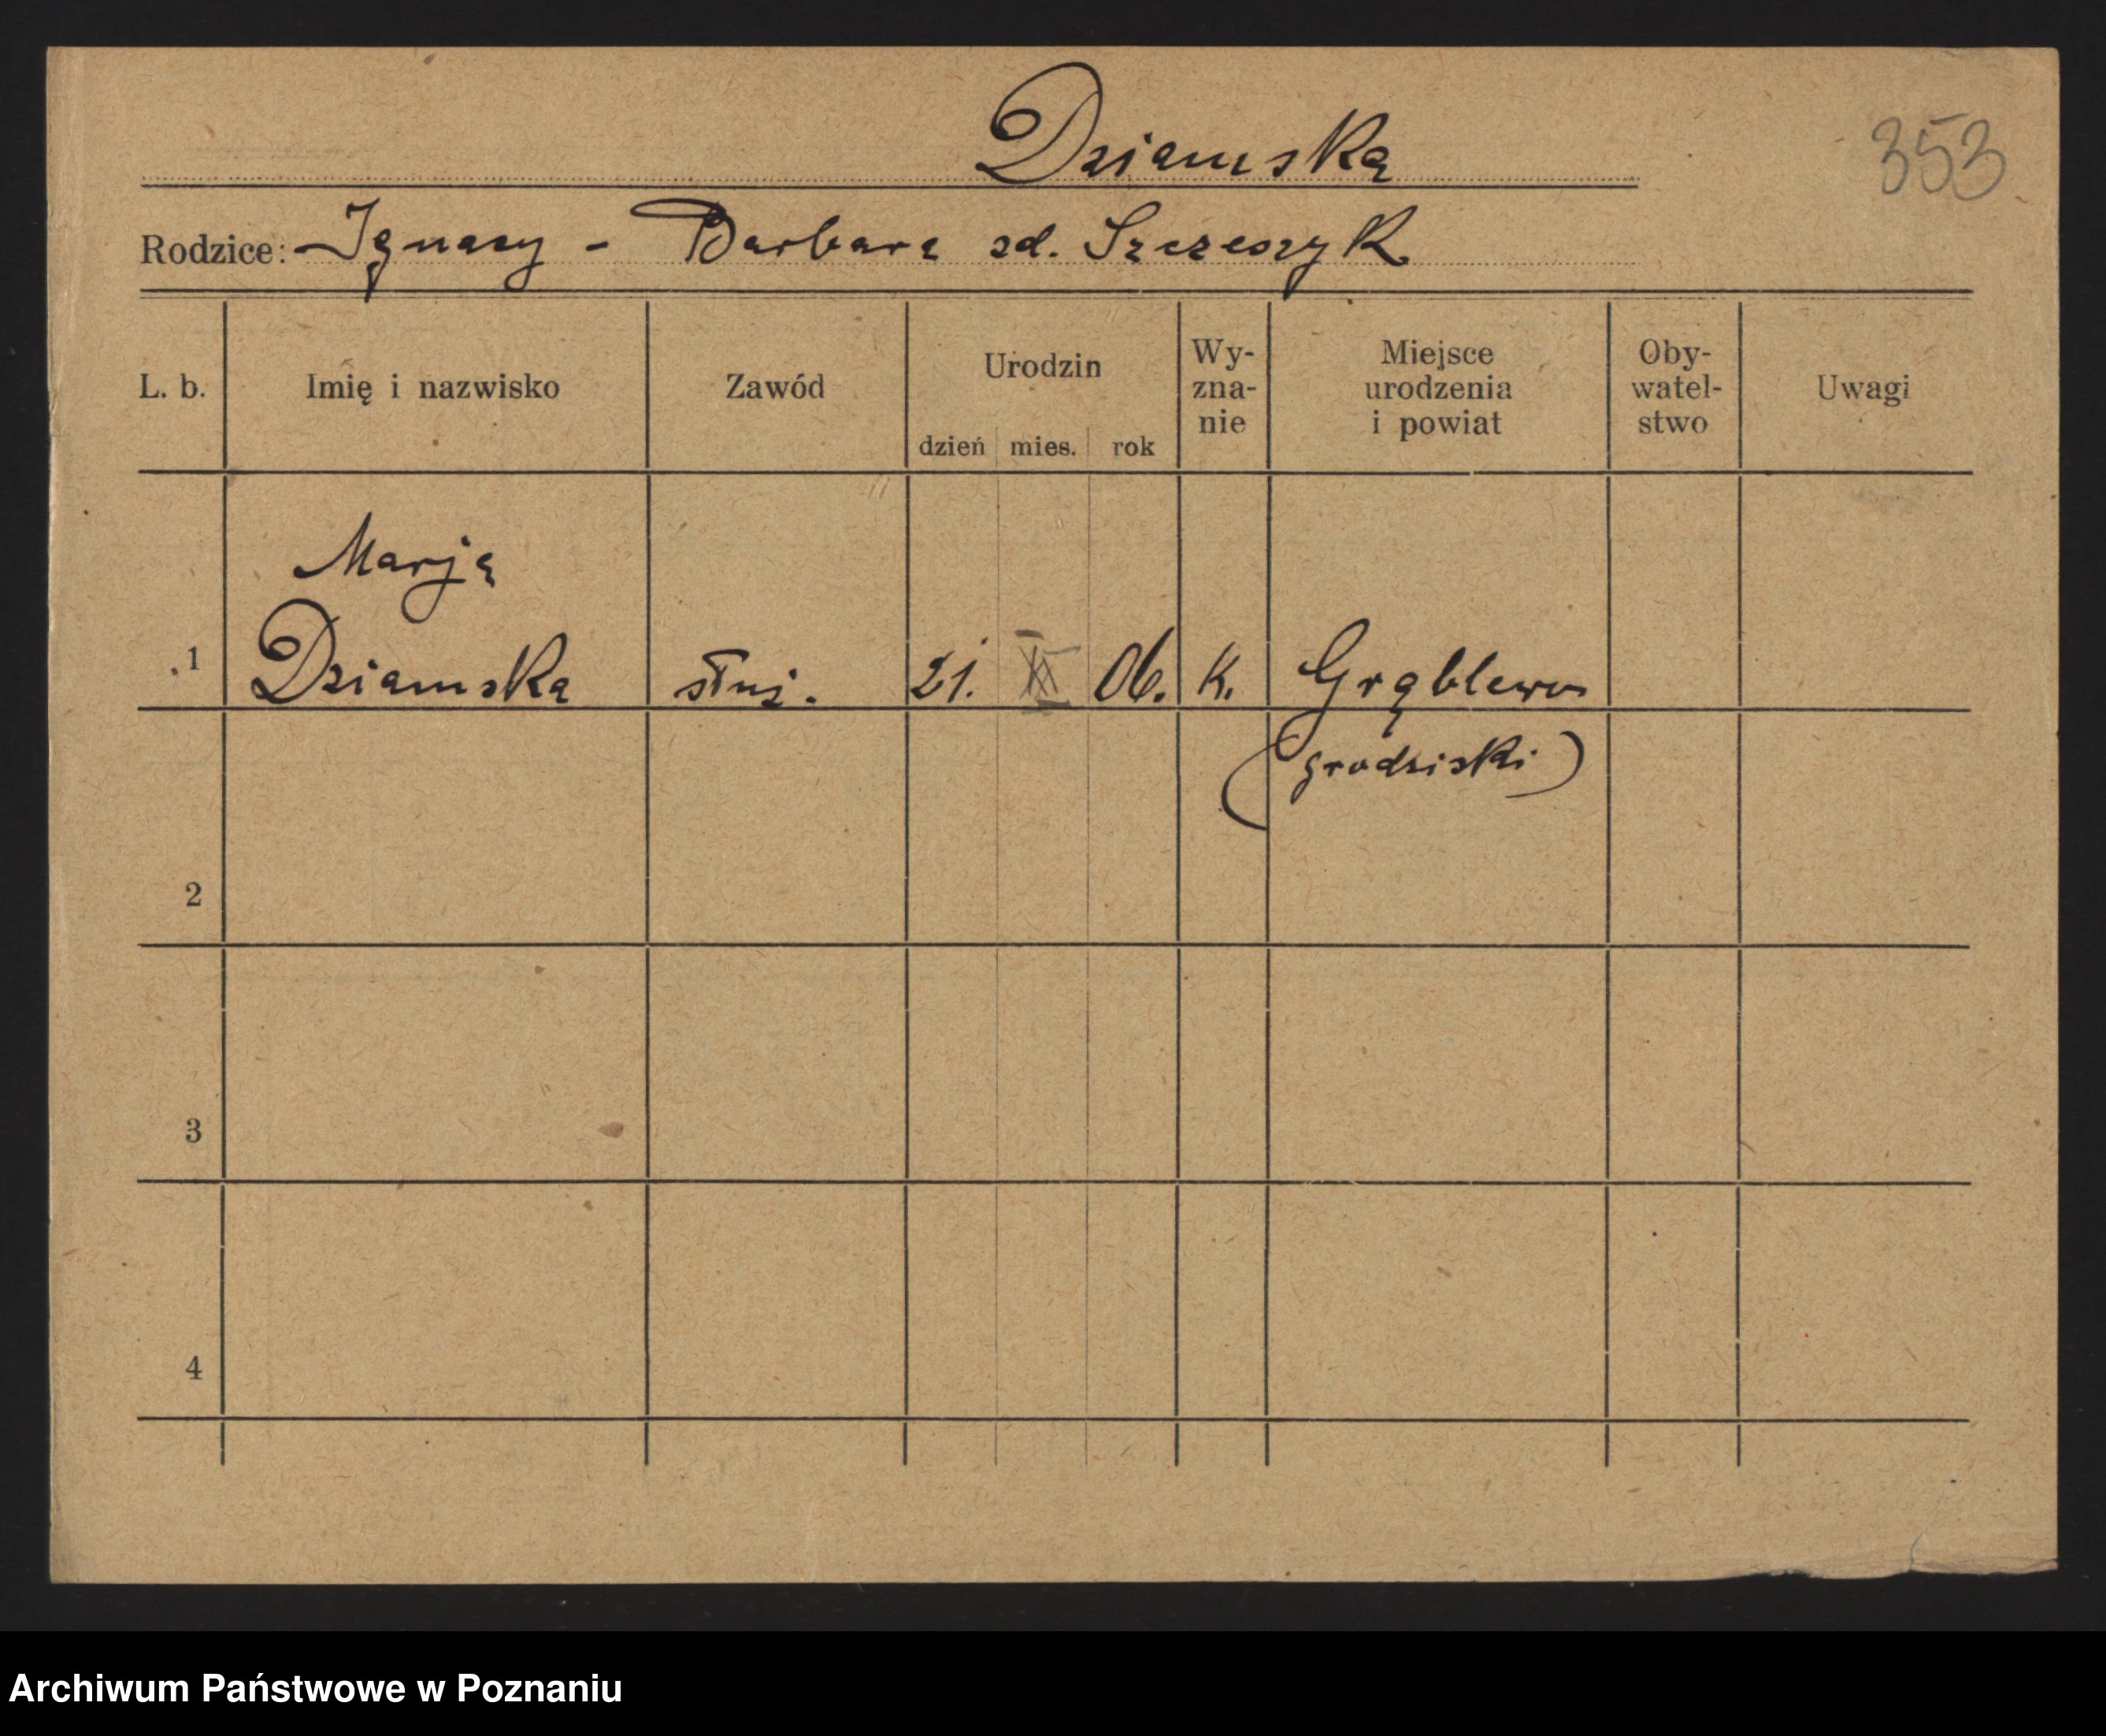 Dziamska
353
Rodzice: Ignacy - Barbara zd. Szczeszyk
L. b. Imię i nazwisko Zawód Urodzin dzień mies. rok Wy-zna-nie Miejsce urodzenia i powiat Oby-watel-stwo Uwagi
Marja
1 Dziamska służ. 21. 06. K. Grąblewo
(grodziski)
2
3
4
Archiwum Państwowe w Poznaniu